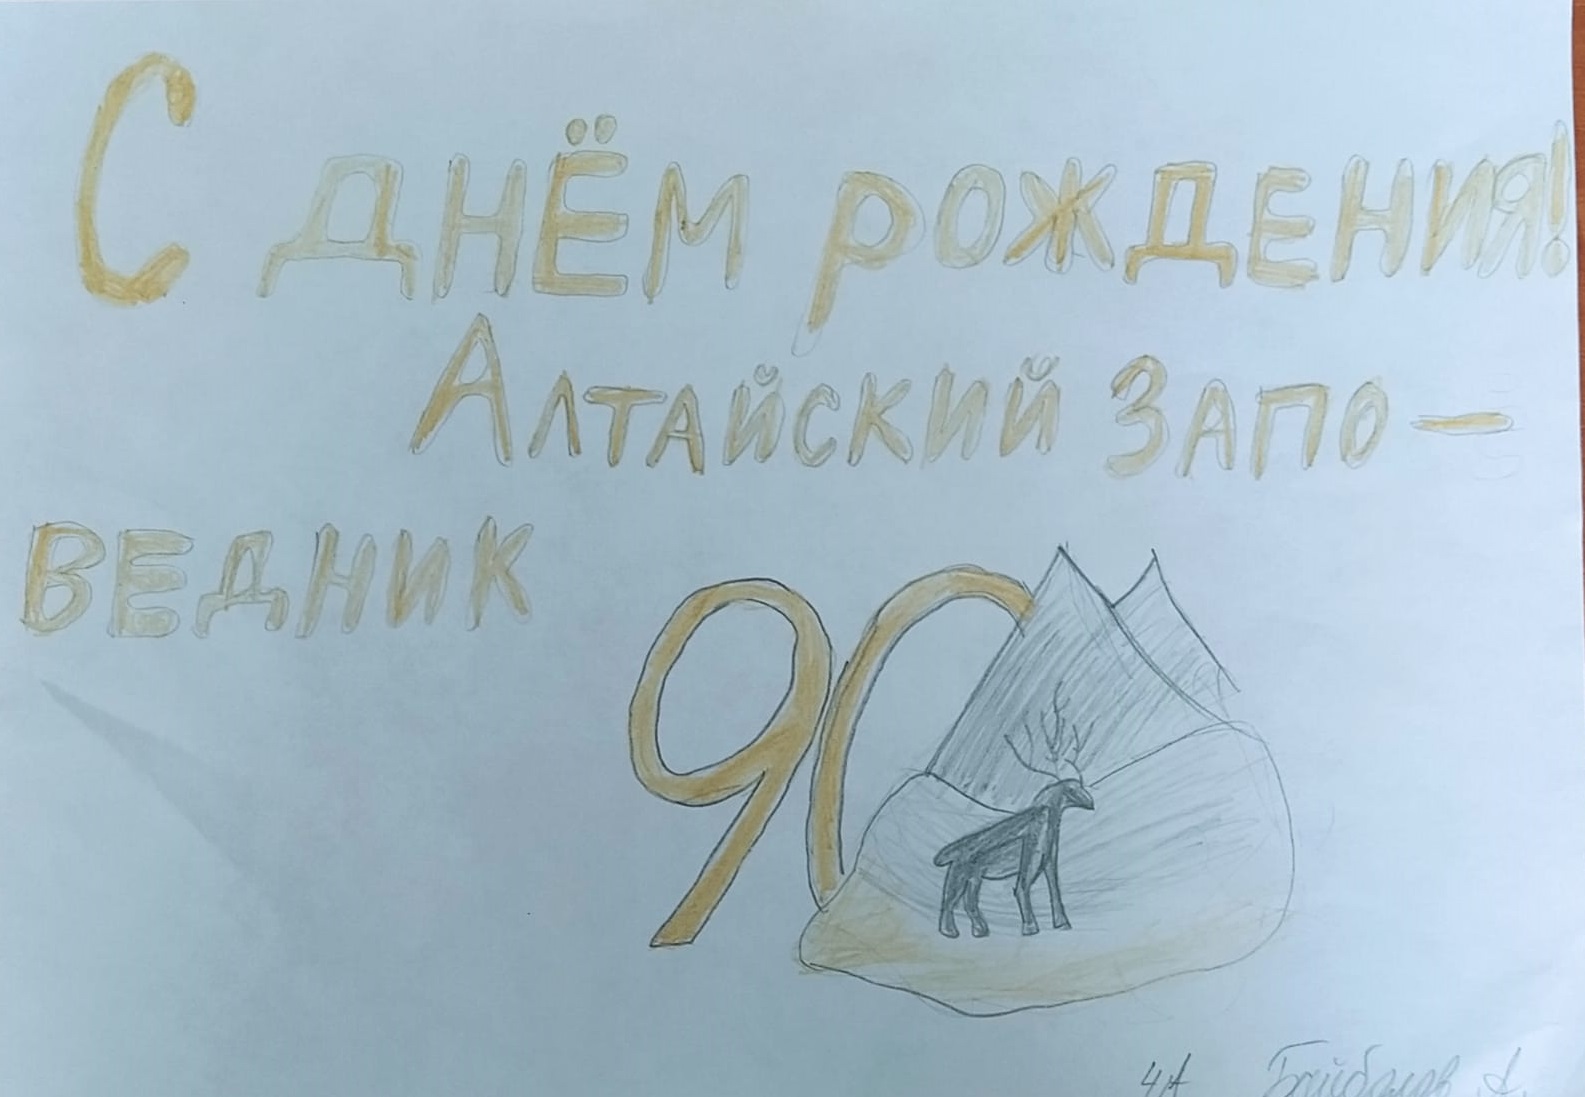 С ДНЁМ РОЖДЕНИЯ!
АЛТАЙСКИЙ ЗАПО-
ВЕДНИК
90
4А Байбалов А.